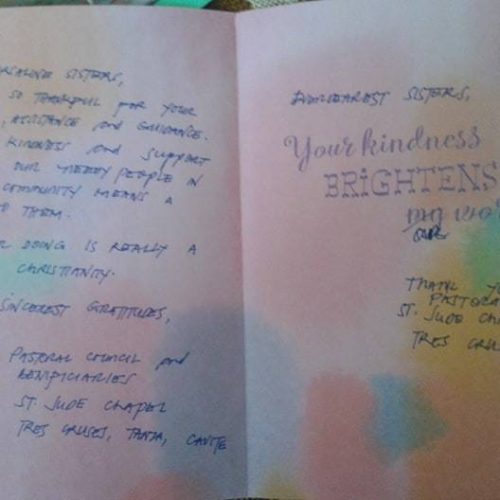 SISTERS,
SO THANKFUL FOR YOUR
ASSISTANCE and GUIDANCE.
KINDNESS and SUPPORT
OUR NEEDY PEOPLE IN
COMMUNITY MEANS A
THEM.
DOING IS REALLY A
CHRISTIANITY.
SINCEREST GRATITUDES,
PASTORAL COUNCIL and
BENIFICIARIES
ST. JUDE CHAPEL
TRES CRUSES, TANZA, CAVITE
SISTERS,
Your kindness
BRIGHTENS
my
OUR
THANK
ST. JUDE
TRES